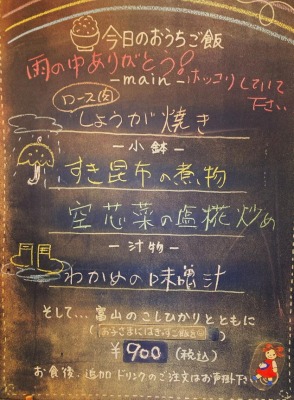 今日のおうちご飯
雨の中ありがとう♡
-main-
ホッコリしていて
下さい
ロース肉
しょうが焼き
-小鉢-
すき昆布の煮物
空芯菜の塩糀炒め
-汁物-
わかめの味噌汁
そして…富山のこしひかりとともに
¥900(税込)
お食後、追加ドリンクのご注文はお声掛け下さい